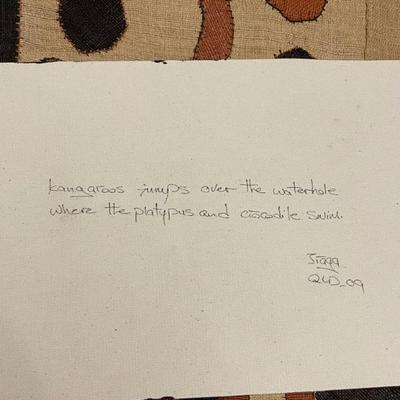 kangaroos jumps over the waterhole
where the platypus and crocodile swim.
QLD_09